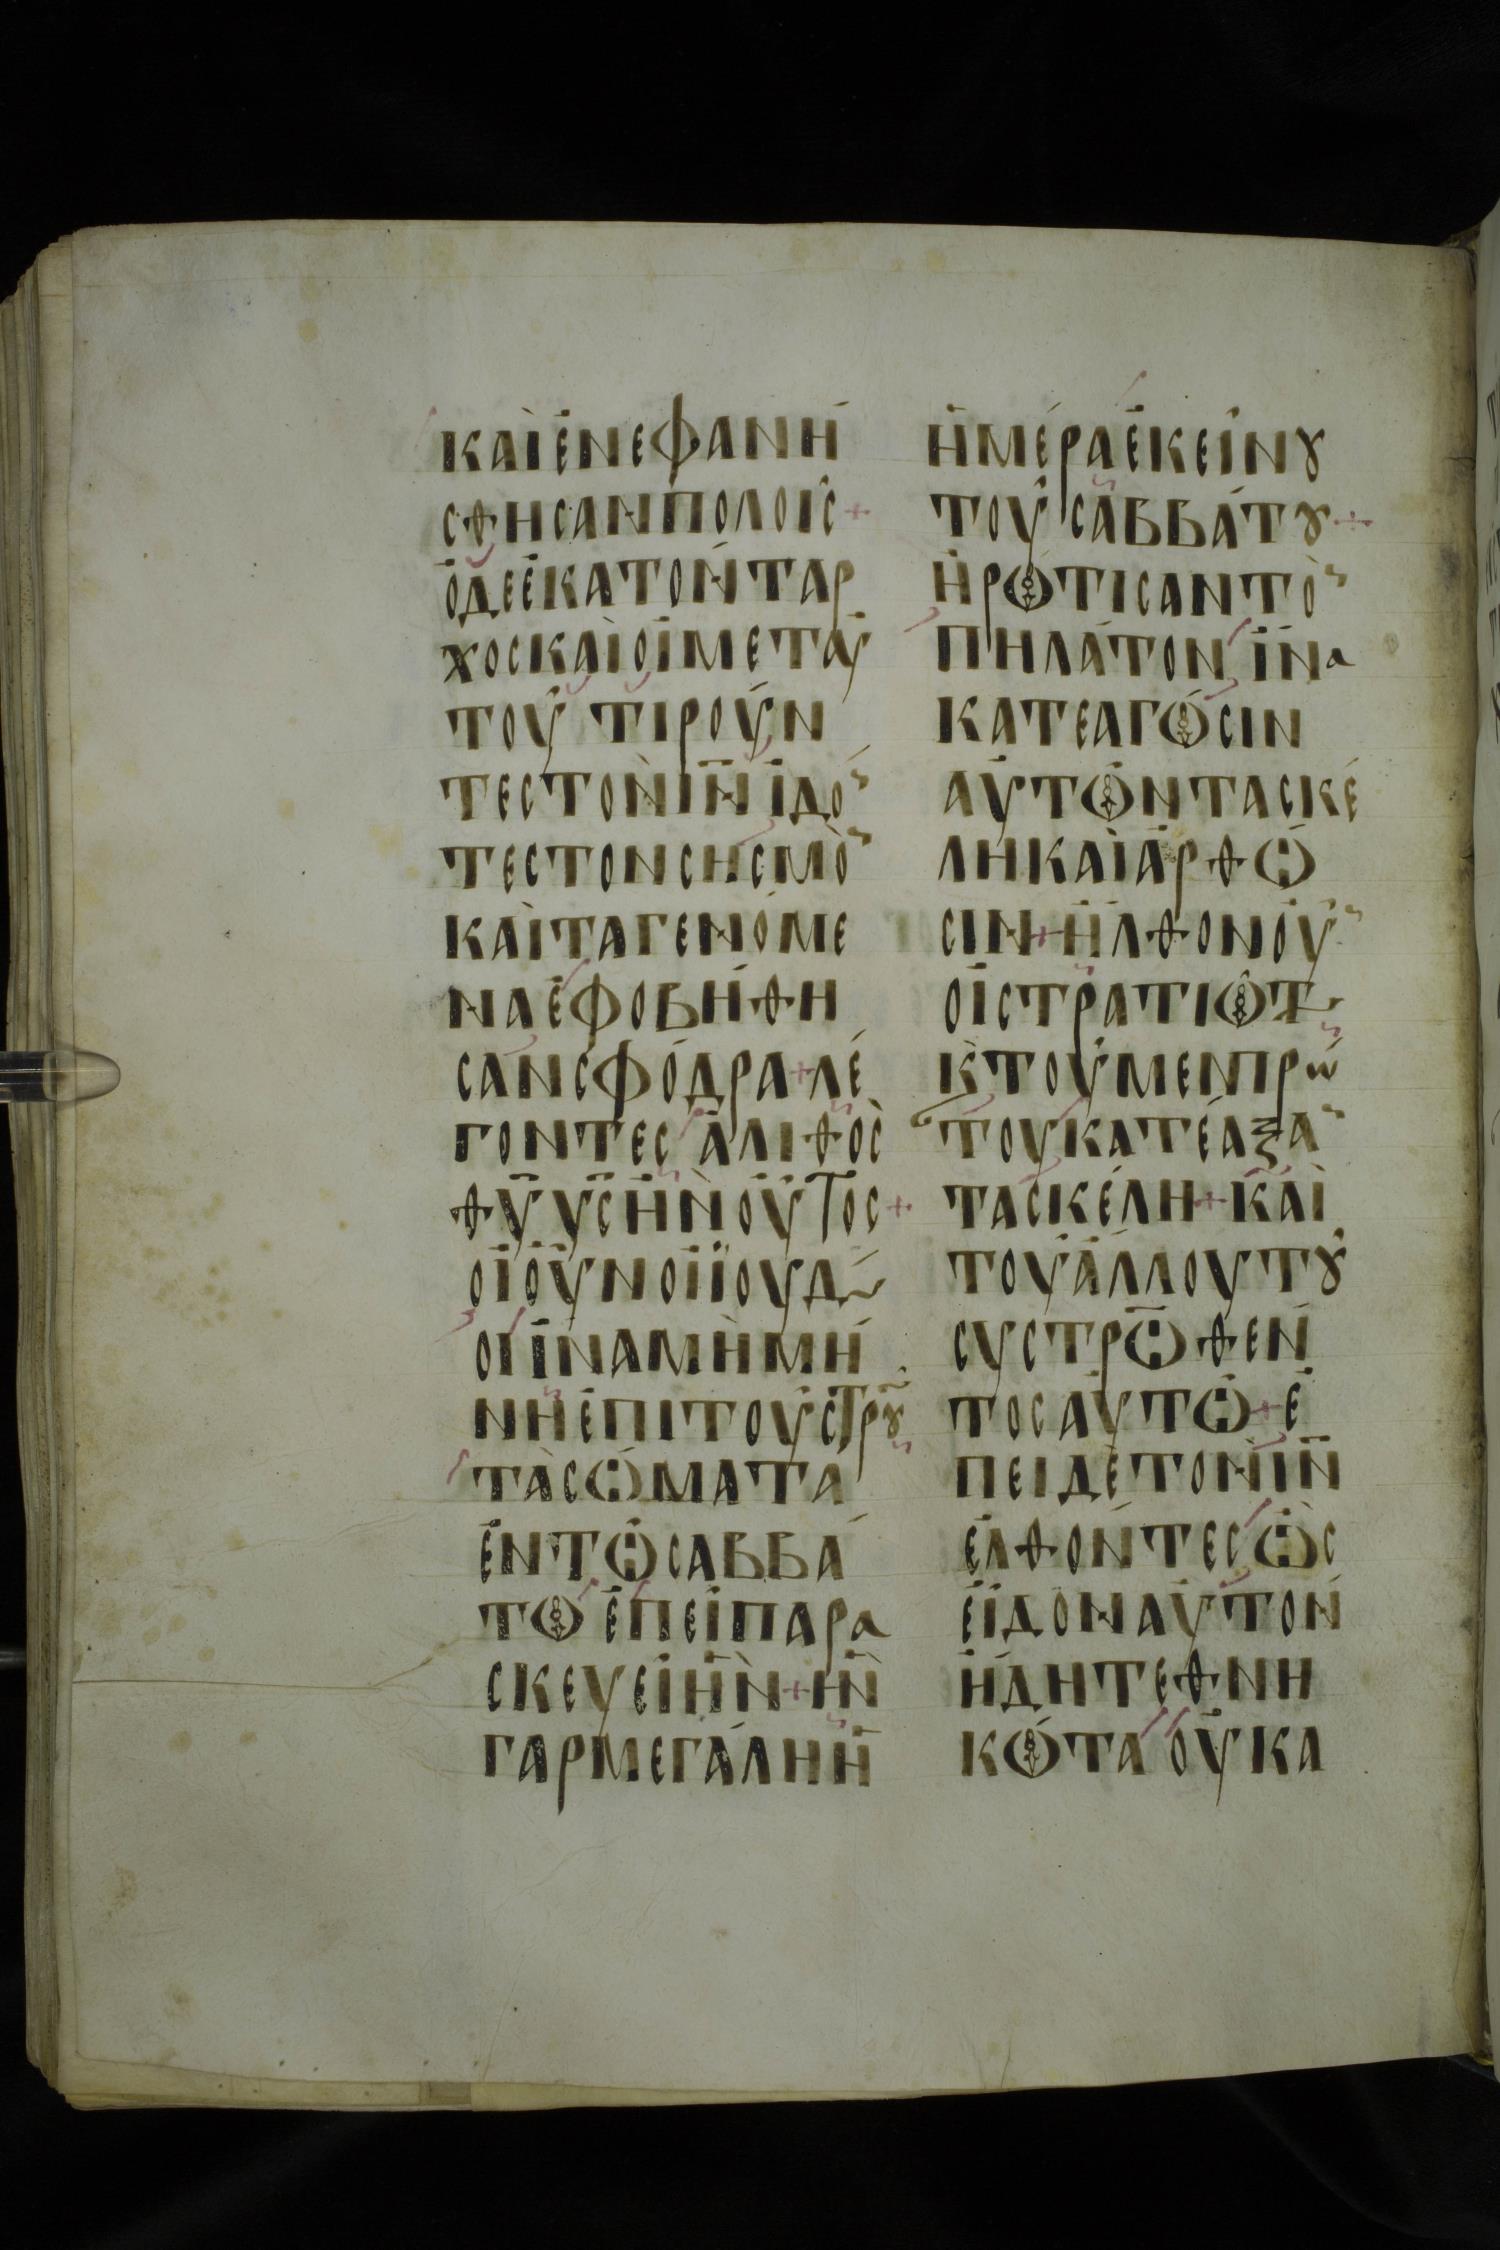 ΚΑΙΕΝΕΦΑΝΗ
ΣΘΗΣΑΝΠΟΛΟΙΣ+
ΟΔΕΕΚΑΤΟΝΤΑΡ
ΧΟΣΚΑΙΟΙΜΕΤΑΥ
ΤΟΥ ΤΙΡΟΥΝ
ΤΕΣΤΟΝΙΝ ΙΔΟ
ΤΕΣΤΟΝΣΗΣΜΟ
ΚΑΙΤΑΓΕΝΟΜΕ
ΝΑΕΦΟΒΗΘΗ
ΣΑΝΣΦΟΔΡΑ+ΛΕ
ΓΟΝΤΕΣ ΑΛΙΘΟΣ
ΘΥ ΥΣΗΝ ΟΥΤΟΣ+
ΟΙΟΥΝΟΙΙΟΥΔ
ΟΙ ΙΝΑΜΗΜΗ
ΝΗΕΠΙΤΟΥΣΤΡΟΥ
ΤΑΣΩΜΑΤΑ
ΕΝΤΩΣΑΒΒΑ
ΤΩ ΕΠΕΙΠΑΡΑ
ΣΚΕΥΕΙΗΝ+ΗΝ
ΓΑΡΜΕΓΑΛΗΗ
ΗΜΕΡΑΕΚΕΙΝΟΥ
ΤΟΥ ΣΑΒΒΑΤΟΥ+
ΗΡΩΤΙΣΑΝΤΟ
ΠΗΛΑΤΟΝ ΙΝΑ
ΚΑΤΕΑΓΩΣΙΝ
ΑΥΤΩΝΤΑΣΚΕ
ΛΗΚΑΙΑΡΘΩ
ΣΙΝ+ΗΛΘΟΝΟΥ
ΟΙΣΤΡΑΤΙΩΤ
ΚΤΟΥΜΕΝΠΡΩ
ΤΟΥΚΑΤΕΑΞΑ
ΤΑΣΚΕΛΗ+ΚΑΙ
ΤΟΥΑΛΛΟΥΤΟΥ
ΣΥΣΤΡΩΘΕΝ
ΤΟΣΑΥΤΩ+Ε
ΠΕΙΔΕΤΟΝΙΝ
ΕΛΘΟΝΤΕΣ ΩΣ
ΕΙΔΟΝΑΥΤΟΝ
ΗΔΗΤΕΘΝΗ
ΚΩΤΑ ΟΥΚΑ